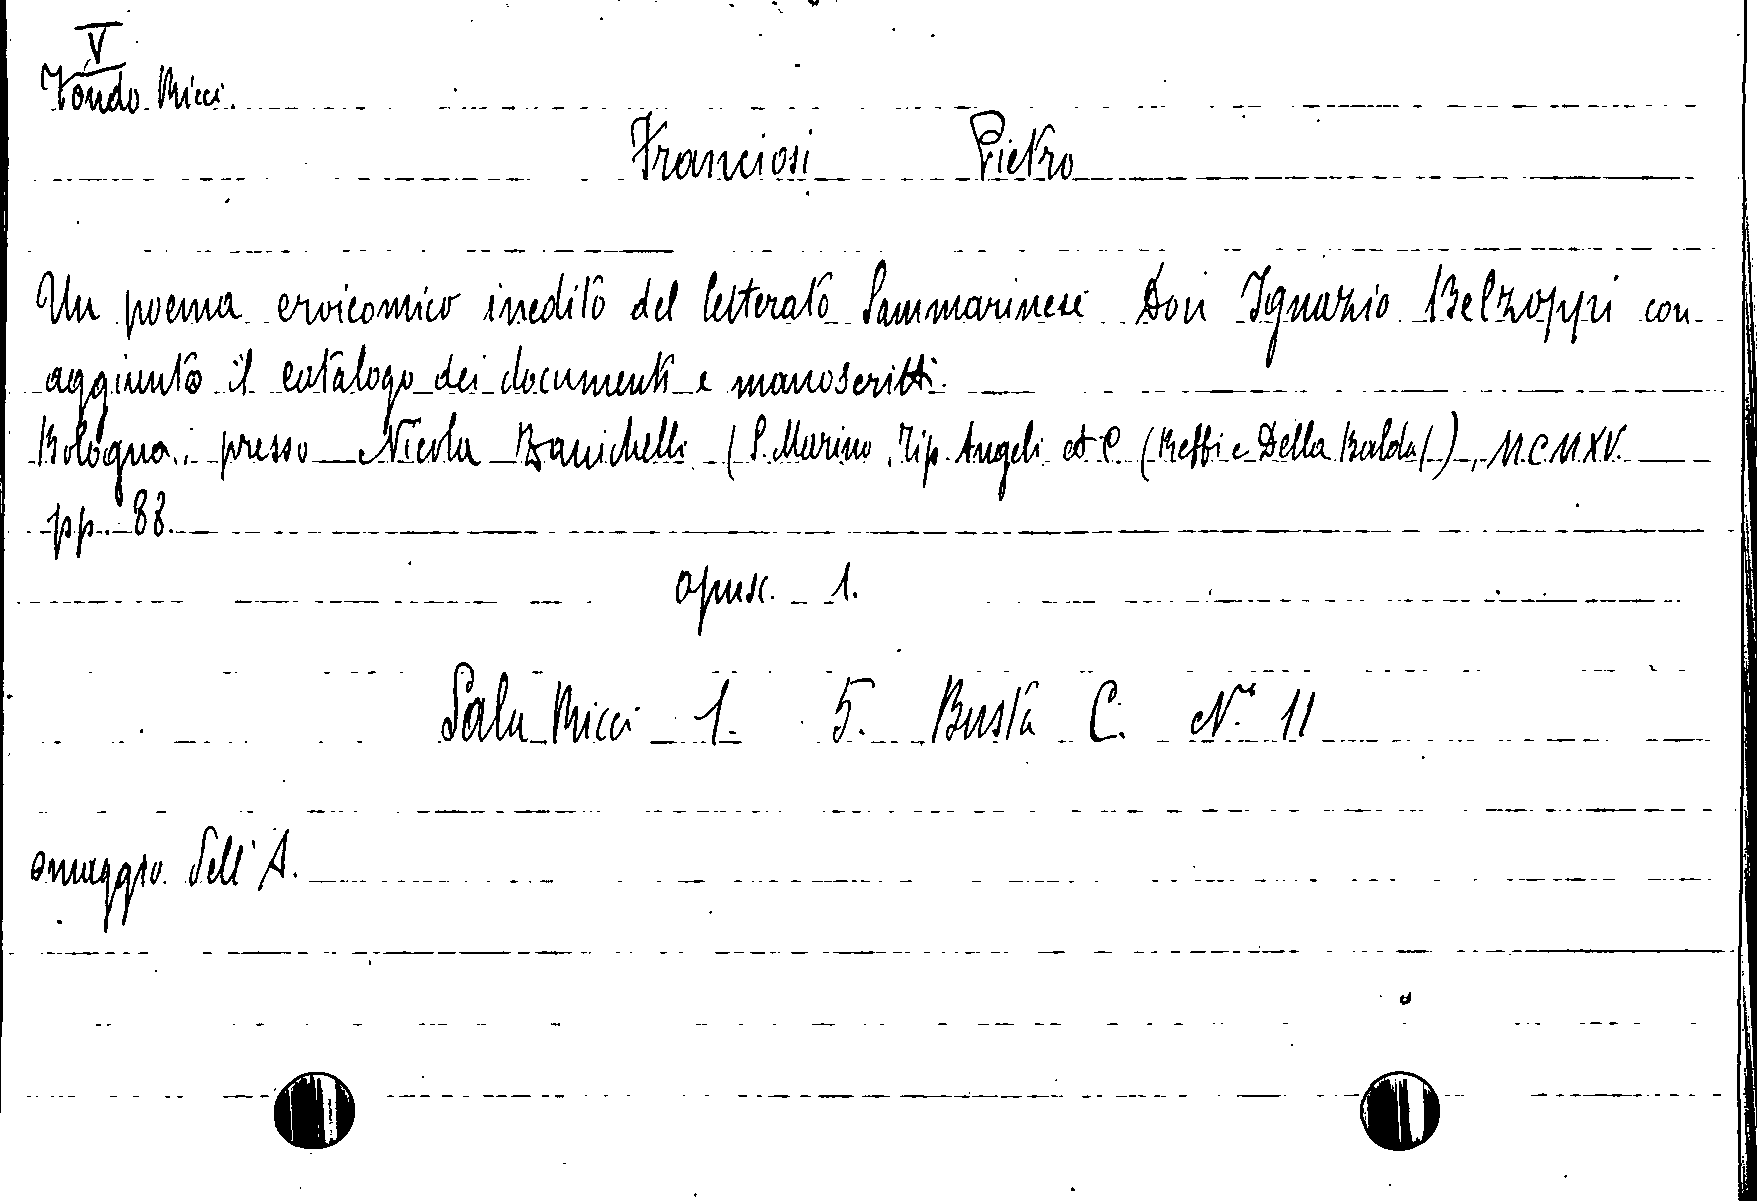 V
Fondo Ricci.
Franciosi Pietro
Un poema eroicomico inedito del letterato Sammarinese Don Ignazio Belzoppi con
aggiunto il catalogo dei documenti e manoscritti.
Bologna. presso Nicola Zanichelli (S. Marino, Tip. Angeli et C. (Reffi e Della Balda)), MCMXV.
pp. 88.
opusc. 1.
Sala Ricci 1. 5. Busta C. N.° 11
omaggio dell'A.